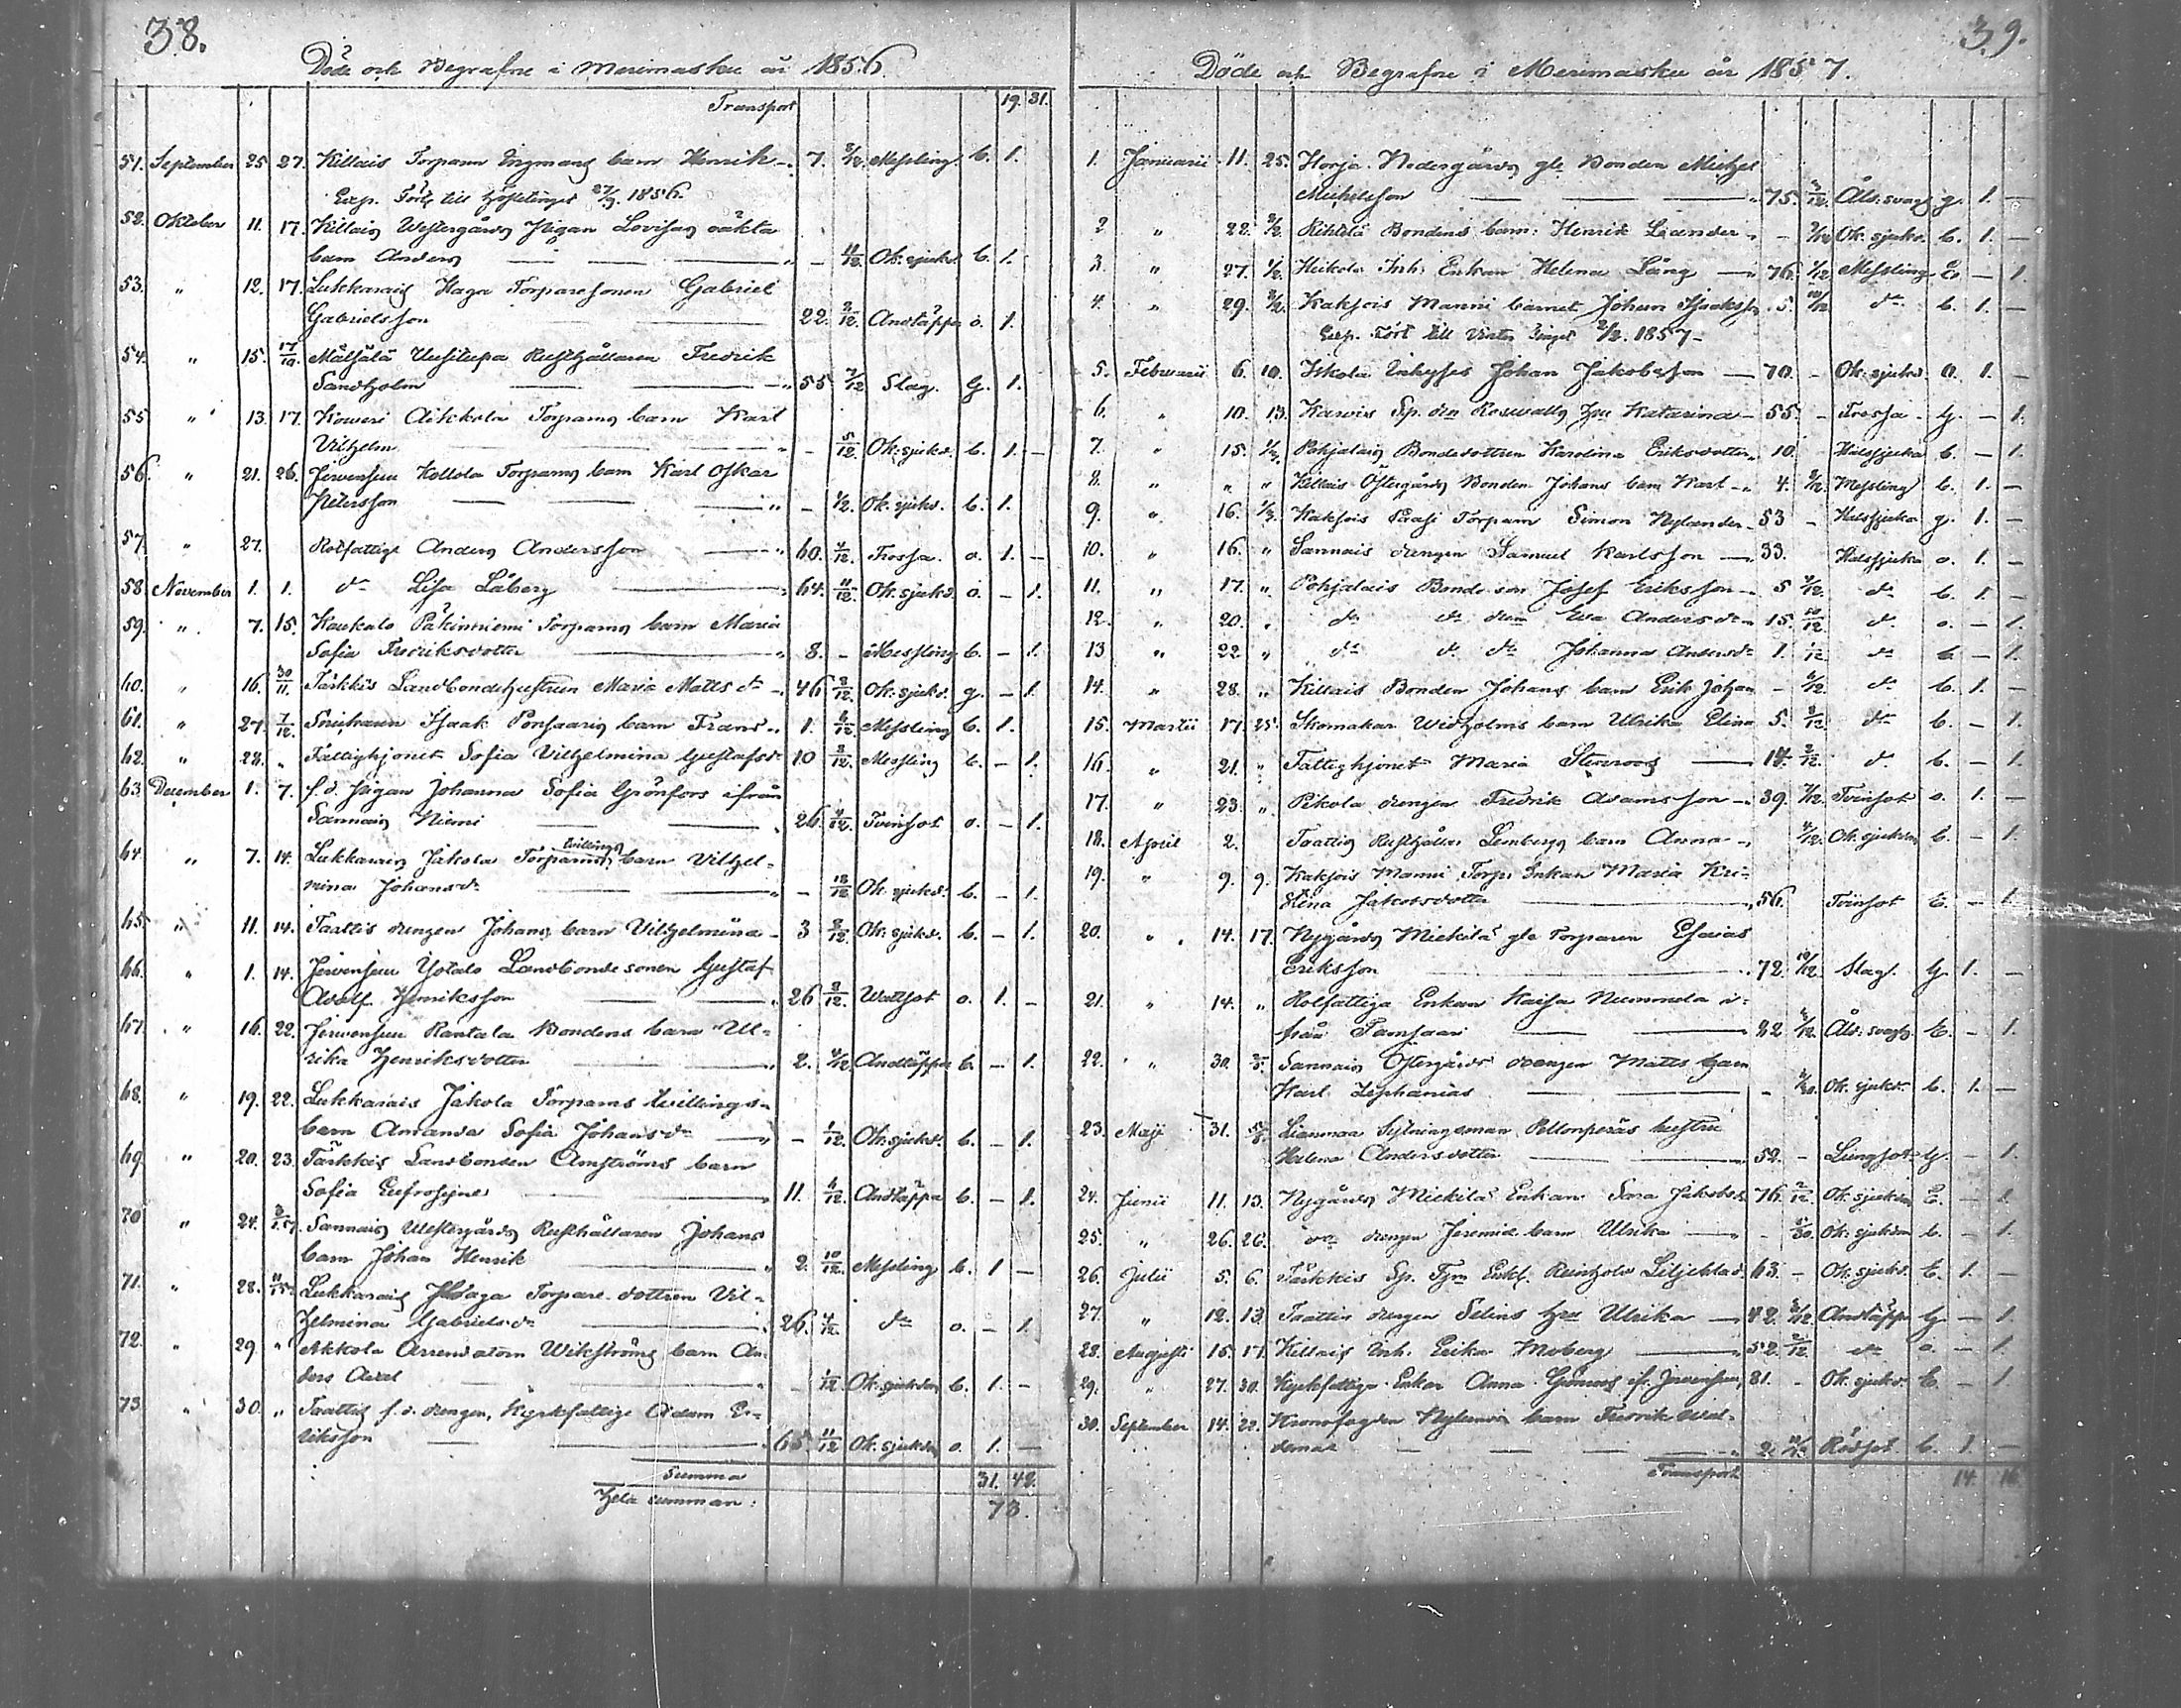 38.
Döde och Begrafne i Merimasku år 1856.
Transport 19. 31.
51. September 25 27. Killais Torparn Engmans barn Henrik 7. Messling. b. 1.
Exp. Förts till Hösttinget 27/9. 1856.
52. Oktober 11. 17. Killais Westergårds Pigan Lovisas oäkta
barn Anders " - Ok. sjukd. b. 1.
53. " 12. 17. Lukkarais Haga Torparesonen Gabriel
Gabrielsson 22. 3/12. Andtäppa o. 1.
54. " 15. 17/19. Uusitupa Rusthållaren Fredrik
Sandholm " 55 7/12 Slag. G. 1.
55 " 13. 17. Aikkola Torpares barn Karl
Vilhelm " - 5/12. Ok. sjukd. b. 1. -
56. " 21. 26. Jervensuu Kollola Torpares barn Karl Oskar
Petersson " - 1/12. Ok. sjukd. b. 1.
57. " 27. Rotfattige Anders Andersson " 60. 4/12. Frossa. o. 1. -
58. November 1. 1. do Lisa Låberg " 64. 11/12. Ok. sjukd. o. - 1.
59. " 7. 15. Torpares barn Maria
Sofia Fredriksdotter " 8. - Messling b. - 1.
60. " 16. 30/11. Tärkkis Landbondehustrun Maria Matts dr 46 2/12. Ok. sjukd. g. - 1.
61. " 27 7/12. Isaak barn Frans " 1. 6/12 Messling b. 1.
62. " 28. " Fattighjonet Sofia Vilhelmina Gustafsdr 10 3/12. Messling b. - 1.
63. December 1. 7. f.d. Pigan Johanna Sofia Grönfors ifrån
Sannais Niemi " 26. 4/12. Tvinsot. o. - 1.
64. " 7. 14. Lukkarais Jakola Torpares tvillings barn Vilhel-
mina Johansdr " - Ok. sjukd. b. - 1.
65. " 11. 14. Taattis drengen Johans barn Vilhelmina 3 2/12. Ok. sjukd. b. - 1.
66. " 1. 14. Jervensuu Yotalo Landbondesonen Gustaf
Adolf Henriksson " 26 3/12. Wattsot o. 1. -
67. " 16. 22. Jervensuu Rantala Bondens barn Ul-
rika Henriksdotter " 2. Andtäppa b. - 1.
68. " 19. 22. Lukkarais Jakola Torpares tvillings-
barn Amanda Sofia Johansdr " - 1/12. Ok. sjukd. b. - 1.
69. " 20. 23. Tärkkis Landbonden Amströms barn
Sofia Eufrosyne " 11. 6/12. Andtäppa b. - 1.
70 " 24. Sannais Westergårds Rusthållaren Johans
barn Johan Henrik " 2. 10/12. Messling b. 1 -
71. " 28. Lukkarais Haga Torpare dottren Vil-
helmina Gabrielsdr " 26. 4/12. do o. - 1.
72. " 29. " Akkola Arrendatorn Wikströms barn An-
ders Axel " - 1/12. Ok. sjukdom b. 1. -
73. " 30. " Taattis f.d. drengen, Kyrkfattige Adam Er-
iksson " 65. 11/12 Ok. sjukdom o. 1. -
Summa 31. 42.
Hela summan: 73.
39.
Döde och Begrafne i Merimasku år 1857.
1. Januarii 11. 25. Horja Nedergårds gle Bonden Michel
Michelsson " 75. 3/12. Åld: svagh g. 1. -
2 " 22. 2/2. Bondens barn: Henrik Leander " - Ok. sjukd. b. 1. -
3. " 27. 1/2. Heikola Inh. Enkan Helena Lång " 76. 1/12 Messling E. - 1.
4. " 29. 2/2. Kaksois Manni barnet Johan Isaksson 5. 10/12 do b. 1. -
Exp. Fört till Vinter Tinget 2/2. 1857.
5. Februarii 6. 10. Inhyses Johan Jakobsson 70. - Ok. sjukd. o. 1. -
6. " 10. 13. Karvis Sp. Rosvalls hu Katarina 55. - Frossa. g. - 1.
7. " 15. 1/3. Pohjalais Bondedottren Karolina Eriksdotter 10. Halssjuka b. - 1.
8. " " " Killais Östergårds Bonden Johans barn Karl 4. 2/12. Messling b. 1. -
9. " 16. 1/3. Kaksois Torparn Simon Nylander 53 - Halssjuka g. 1. -
10. " 16. " Sannais drengen Samuel Karlsson 33. Halssjuka o. 1. -
11. " 17. " Pohjalais Bonde son Josef Eriksson 5 2/12. do b. 1. -
12. " 20. " do do dren Eva Andersdr 15. 10/12 do o. - 1.
13 " 22 " do do do Johanna Andersdr 1. do b. - 1.
14. " 28. " Killais Bonden Johans barn Erik Johan - 6/12. do b. 1. -
15. Martii 17. 25. Skomakar Widholms barn Ulrika Elina 5. 2/12. do b. - 1.
16. " 21. " Fattighjonet Maria 14. 2/12. do b. - 1.
17. " 23. " Pikola drengen Fredrik Adamsson 39. 7/12. Tvinsot o. 1. -
18. April 2. Taattis Rusthållar Lembergs barn Anna " 4/12. Ok. sjukdom b. - 1.
19. " 9. 9. Kaksois Manni Torp. Enkan Maria Kri-
stina Jakobsdotter " 56. Tvinsot E. - 1.
20. " 14. 17. Nygårds Mickilä gle Torparen Esaias
Eriksson " 72. 10/12. Slag. G. 1. -
21. " 14. " Rotfattiga Enkan Kaisa Nummela i-
från " 82. Åld: svagh E. - 1.
22. " 30. Sannais Östergårds drengen Matts barn
Karl Zephanias - Ok. sjukd. b. 1. -
23. Maji 31. Sytningsman hustru
Helena Andersdotter " 52. - Lungsot. G. - 1.
24. Junii 11. 13. Nygårds Mickilä Enkan Sara Jakobsdr 76. 2/12. Ok. sjukdom E. - 1.
25. " 26. 26. do drengen Jeremias barn Ulrika " - Ok. sjukdom b. - 1.
26. Julii 5. 6. Tärkkis Sp. Enkl. Reinhold Liljeblad. 63. - Ok. sjukd. E. 1. -
27. " 12. 13. Taattis drengen Selins hu Ulrika 42. Andtäpp. G. - 1.
28. Augusti 15. 17. Killais Inh. Erika Moberg " 52. 2/12. do o. - 1.
29. " 27. 30. Kyrkfattiga Enkan Anna if. Jervensuu 81. - Ok. sjukd. E. - 1.
30. September 14. 22. Kronofogden Nylunds barn Fredrik Wal-
demar " 2. Rödsot b. 1. -
Transport 14. 16.